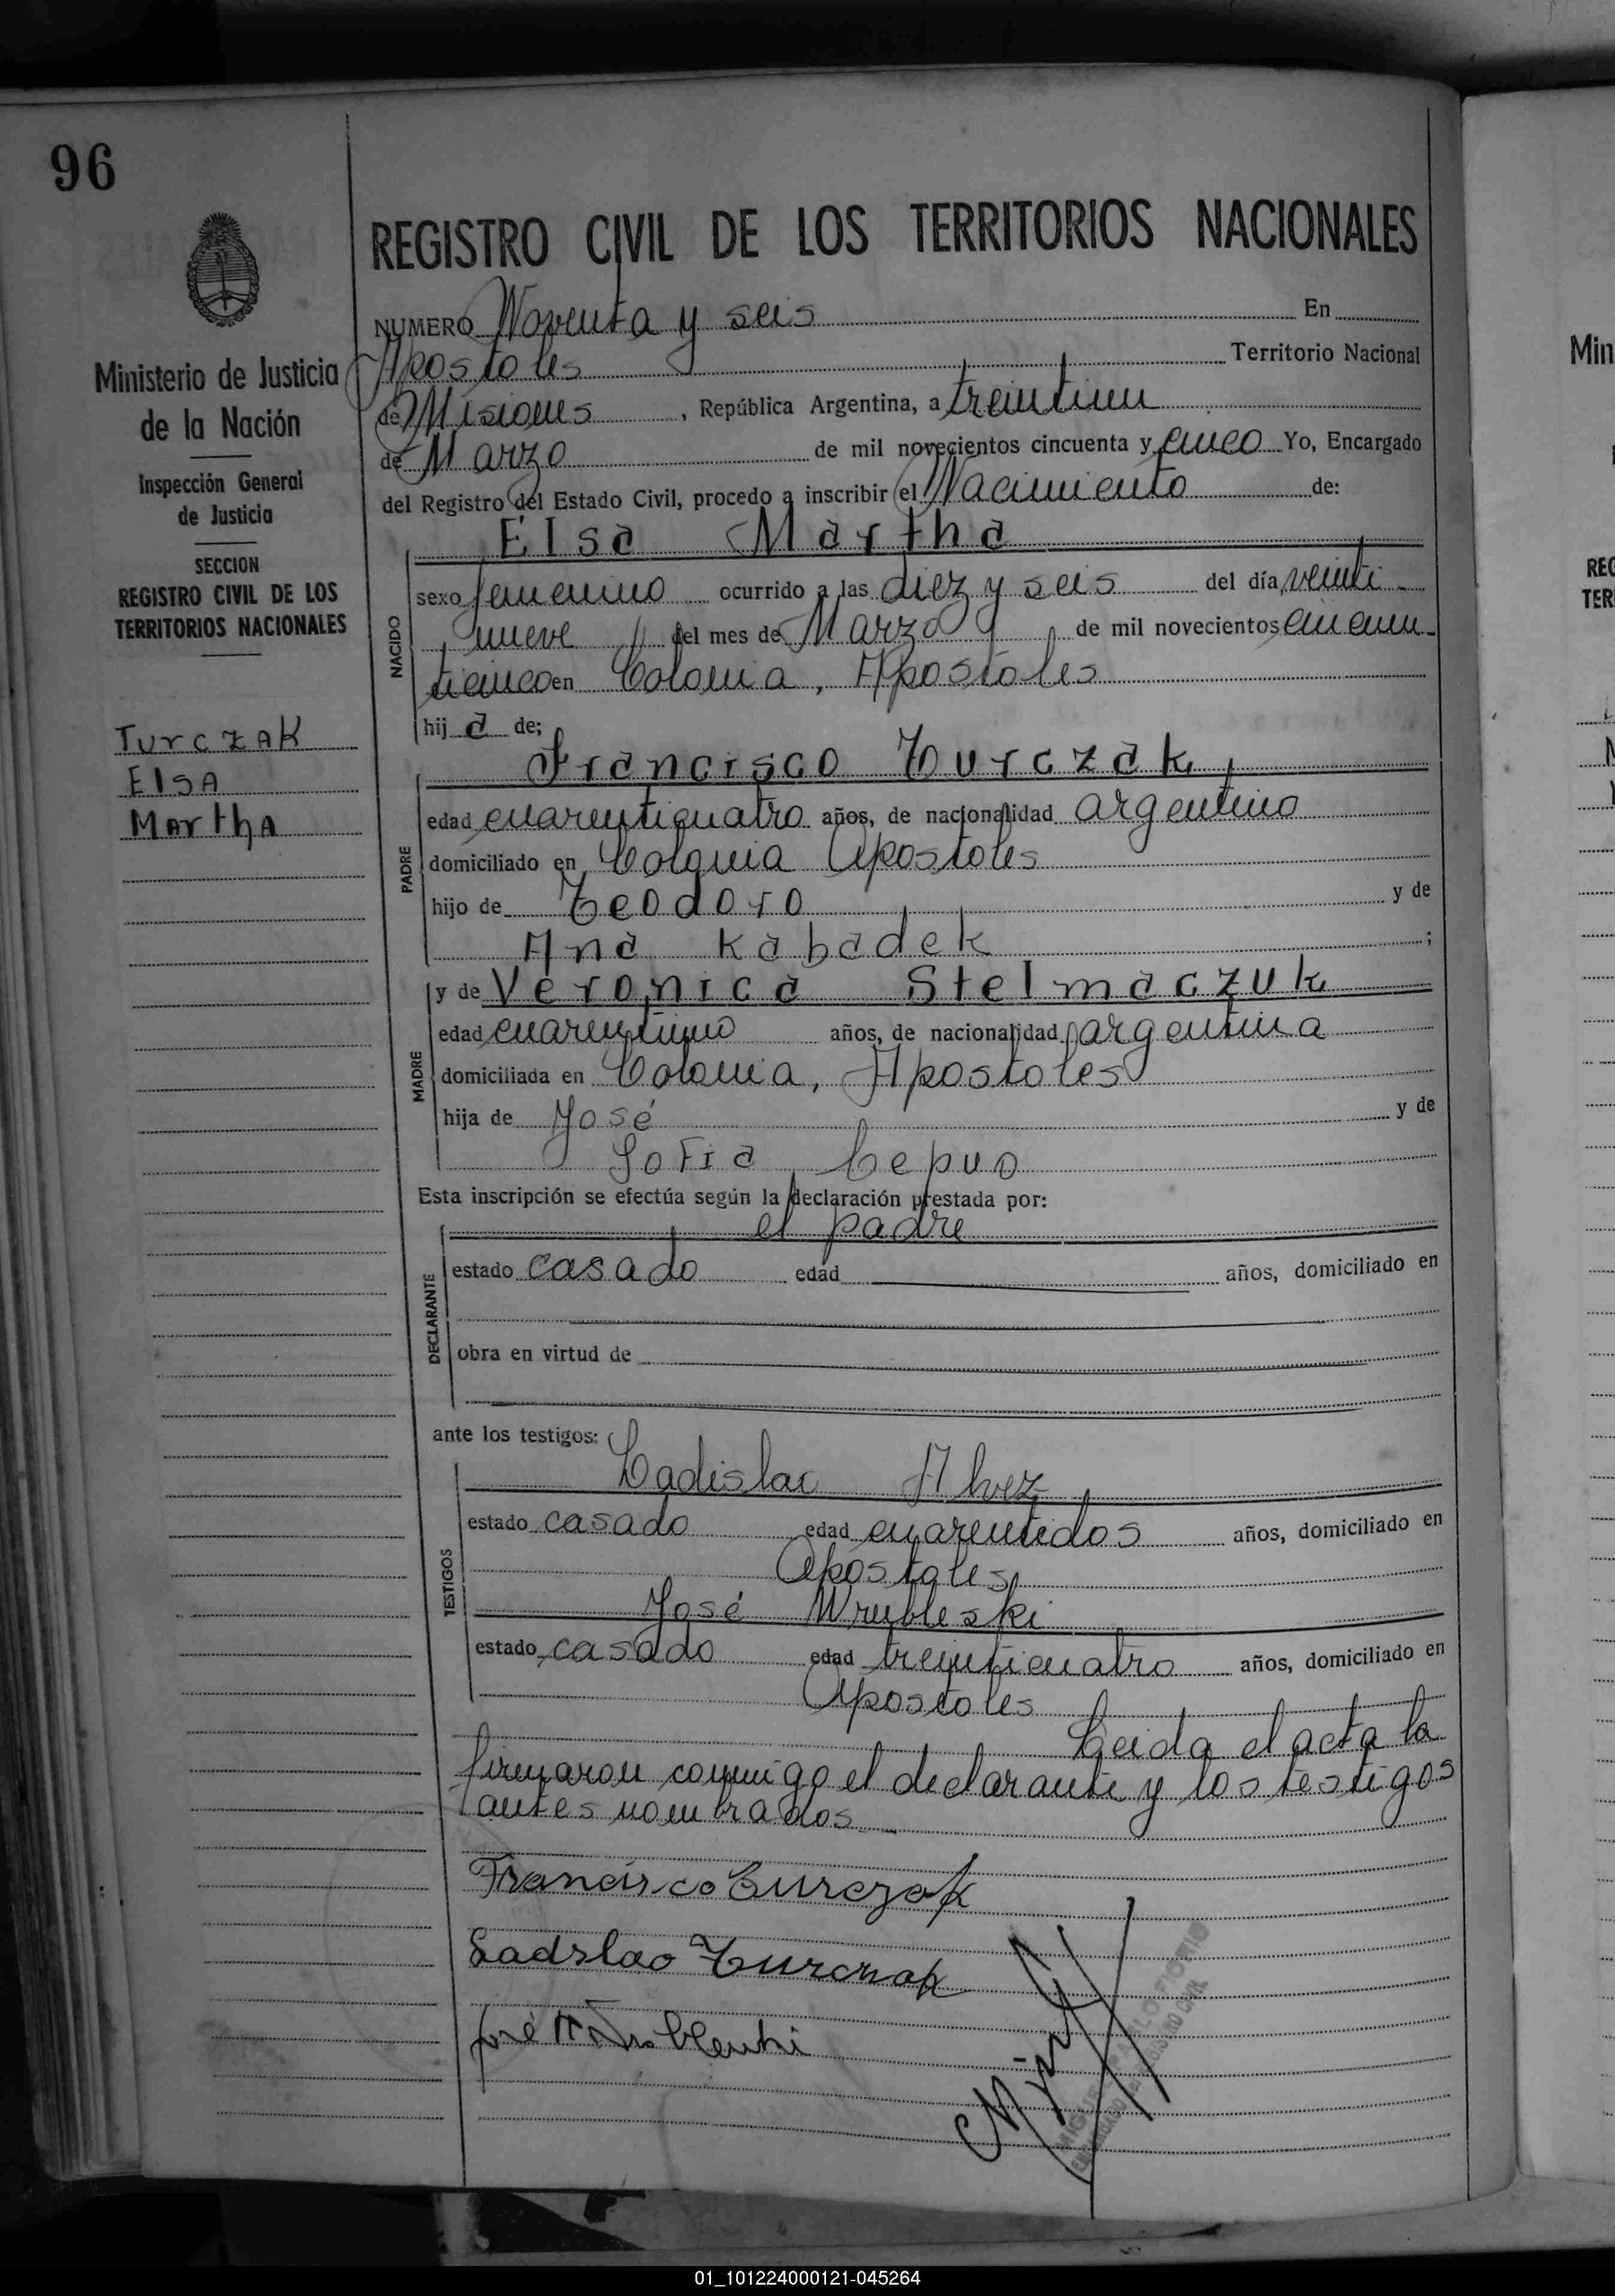 96
REGISTRO CIVIL DE LOS TERRITORIOS NACIONALES
Ministerio de Justicia
de la Nación
Inspección General
de Justicia
SECCION
REGISTRO CIVIL DE LOS
TERRITORIOS NACIONALES
Turczak
Elsa
Martha
NUMERO Noventa y seis En
Apostoles Territorio Nacional
de Misiones, República Argentina, a treintiun
de Marzo de mil novecientos cincuenta y cinco Yo, Encargado
del Registro del Estado Civil, procedo a inscribir el Nacimiento de:
Elsa Martha
NACIDO
sexo femenino ocurrido a las diez y seis del día veinti-
nueve del mes de Marzo de mil novecientos cincuen-
ticinco en Colonia, Apostoles
hij a de;
Francisco Turczak,
PADRE
edad cuarenticuatro años, de nacionalidad argentino
domiciliado en Colonia Apostoles
hijo de Teodoro y de
Ana Kabadek ;
y de Veronica Stelmaczuk
MADRE
edad cuarentiuno años, de nacionalidad argentina
domiciliada en Colonia, Apostoles
hija de José y de
Sofia Cepuo
Esta inscripción se efectúa según la declaración prestada por:
el padre
DECLARANTE
estado casado edad años, domiciliado en
obra en virtud de
ante los testigos:
Ladislao
TESTIGOS
estado casado edad cuarentidos años, domiciliado en
Apostoles
José Wrubleski
estado casado edad treinticuatro años, domiciliado en
Apostoles
Leida el acta la
firmaron conmigo el declarante y los testigos
antes nombrados
Francisco Turczak
Ladslao Turczak
José
Min
REG
TER
01_101224000121-045264